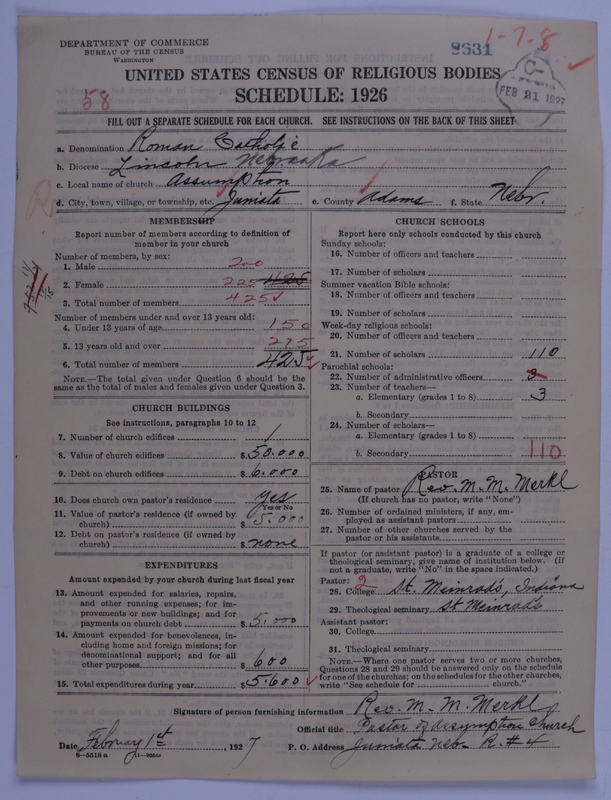 DEPARTMENT OF COMMERCE
BUREAU OF THE CENSUS
WASHINGTON
8631
1-7-8
FEB 21 1927
58
UNITED STATES CENSUS OF RELIGIOUS BODIES
SCHEDULE: 1926
FILL OUT A SEPARATE SCHEDULE FOR EACH CHURCH. SEE INSTRUCTIONS ON THE BACK OF THIS SHEET
a. Denomination Roman Catholic
b. Diocese Lincoln Nebraska
c. Local name of church Assumption
d. City, town, village, or township, etc. Juniata e. County Adams f. State Nebr.
MEMBERSHIP
Report number of members according to definition of
member in your church
Number of members, by sex:
1. Male 200
2. Female 225 425
3. Total number of members 425
Number of members under and over 13 years old:
4. Under 13 years of age 150
5. 13 years old and over 275
6. Total number of members 425
NOTE.—The total given under Question 6 should be
same as the total of males and females given under Question 3.
CHURCH BUILDINGS
See instructions, paragraphs 10 to 12
7. Number of church edifices 1
8. Value of church edifices $50.000
9. Debt on church edifices $6.000
10. Does church own pastor's residence yes
Yes or No
11. Value of pastor's residence (if owned by
church) $5.000
12. Debt on pastor's residence (if owned by
church) $none
EXPENDITURES
Amount expended by your church during last fiscal year
13. Amount expended for salaries, repairs,
and other running expenses; for im-
provements or new buildings; and for
payments on church debt $5.000
14. Amount expended for benevolences, in-
cluding home and foreign missions; for
denominational support; and for all
other purposes $600
15. Total expenditures during year $5.600
CHURCH SCHOOLS
Report here only schools conducted by this church
Sunday schools:
16. Number of officers and teachers
17. Number of scholars
Summer vacation Bible schools:
18. Number of officers and teachers
19. Number of scholars
Week-day religious schools:
20. Number of officers and teachers
21. Number of scholars 110
Parochial schools:
22. Number of administrative officers 3
23. Number of teachers—
a. Elementary (grades 1 to 8) 3
b. Secondary
24. Number of scholars—
a. Elementary (grades 1 to 8)
b. Secondary 110
PASTOR
25. Name of pastor Rev. M. M. Merkl
(If church has no pastor, write "None")
26. Number of ordained ministers, if any, em-
ployed as assistant pastors
27. Number of other churches served by the
pastor or his assistants
If pastor (or assistant pastor) is a graduate of a college or
theological seminary, give name of institution below. (If
not a graduate, write "No" in the space indicated.)
Pastor: 2
28. College St. Meinrad's, Indiana
29. Theological seminary St Meinrads
Assistant pastor:
30. College
31. Theological seminary
NOTE.—Where one pastor serves two or more churches,
Questions 28 and 29 should be answered only on the schedule
for one of the churches; on the schedules for the other churches,
write "See schedule for church."
Signature of person furnishing information Rev. M. M. Merkl
Official title Pastor of Assumption Church
Date February 1st, 1927 P. O. Address Juniata Nebr R. #4
8-5518 a